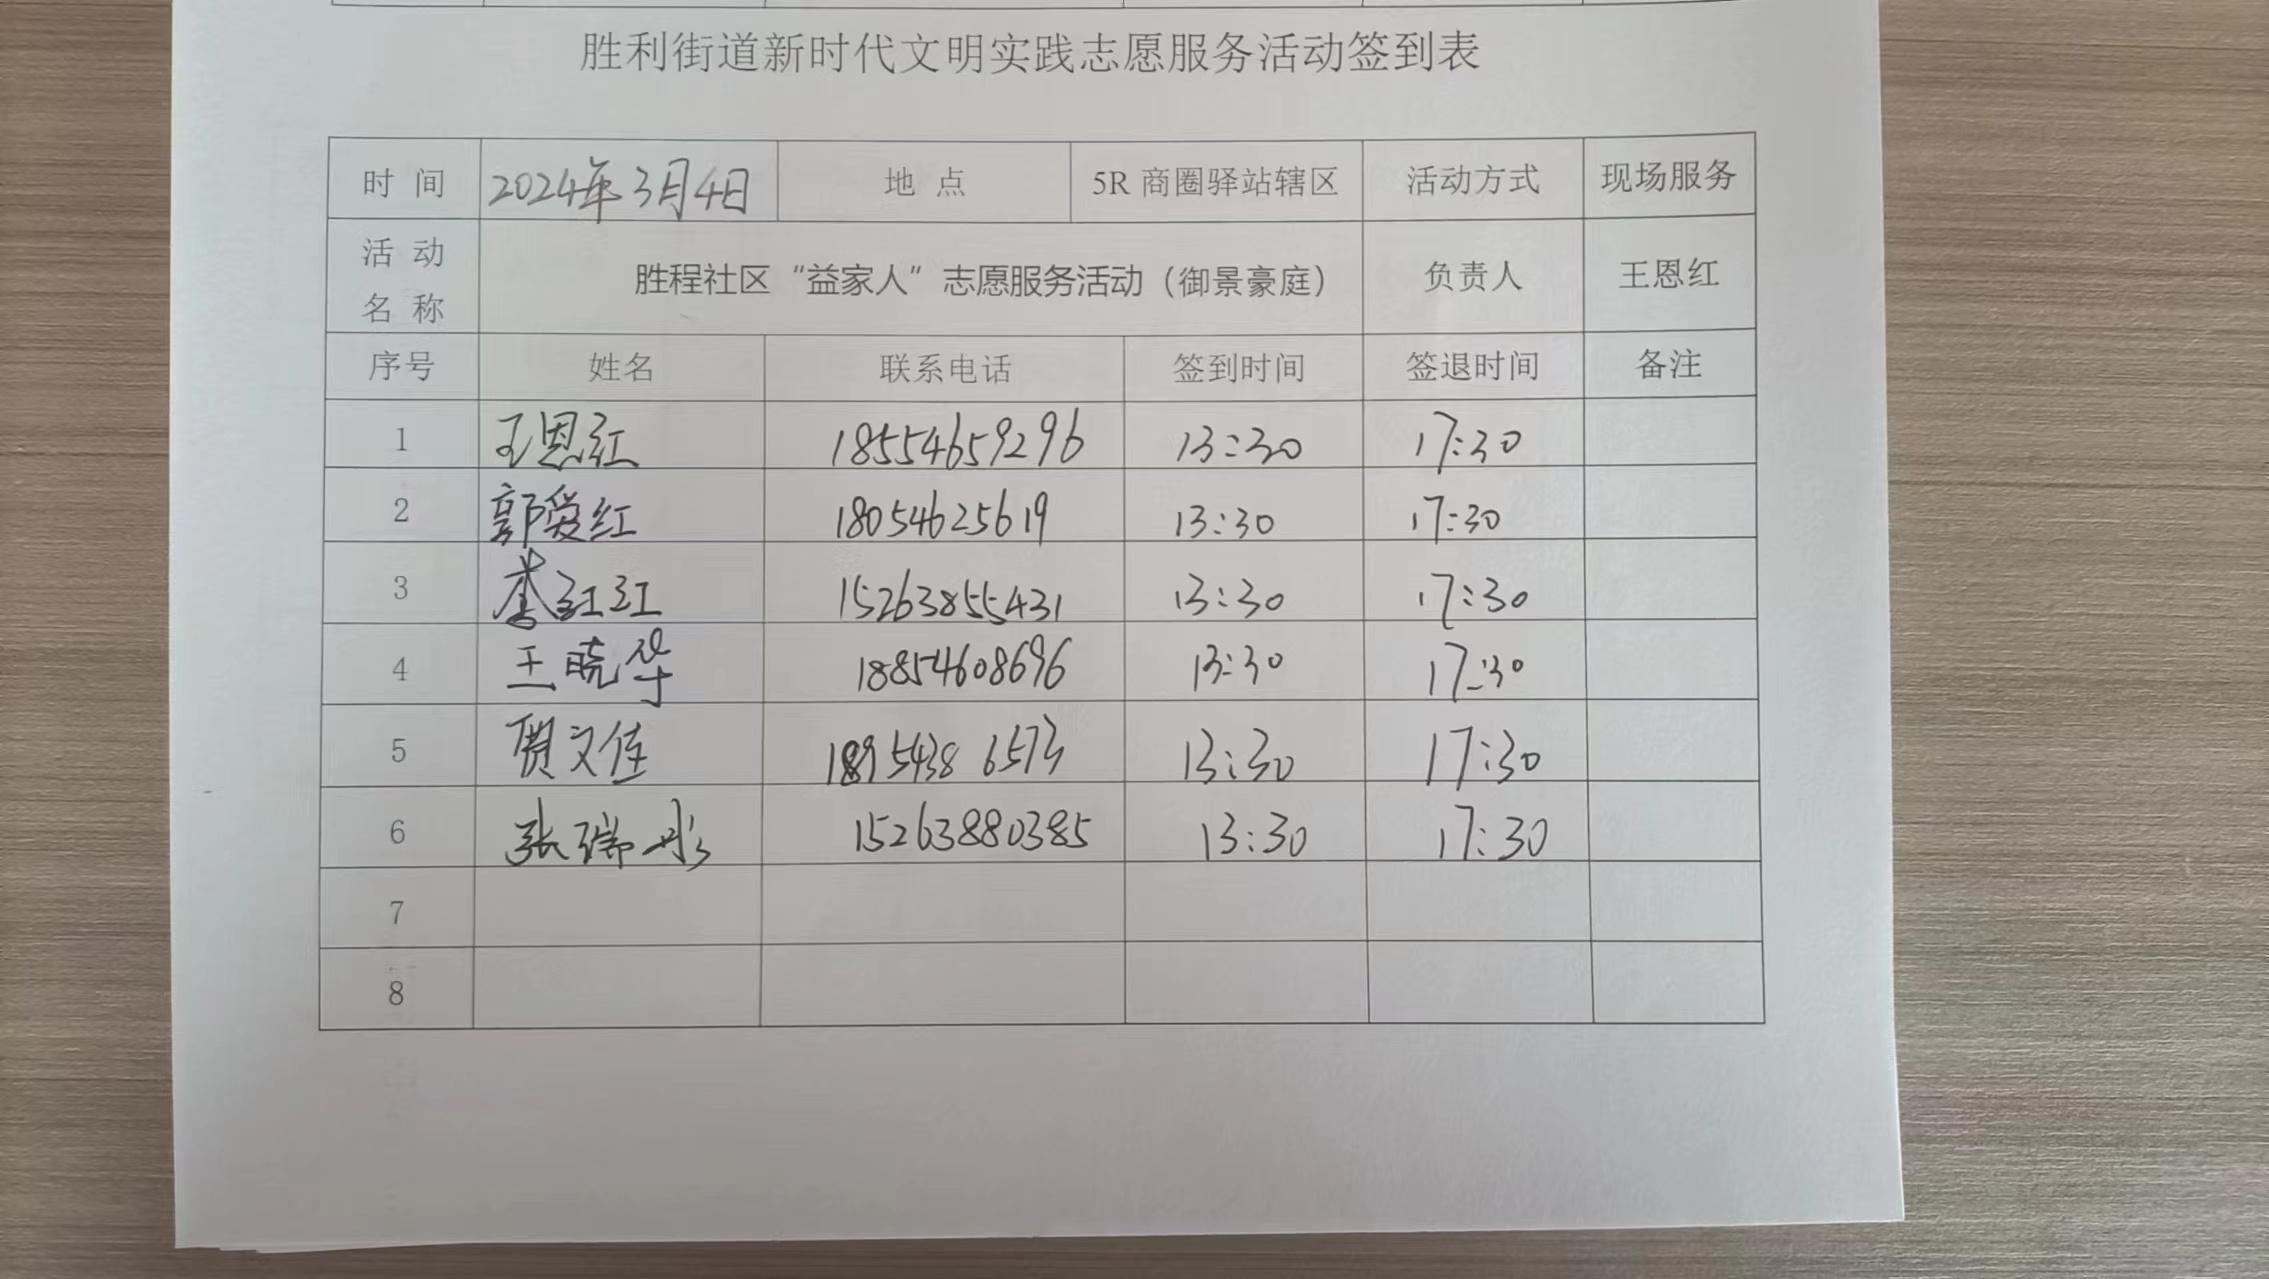 胜利街道新时代文明实践志愿服务活动签到表
时 间 2024年3月4日 地 点 5R 商圈驿站辖区 活动方式 现场服务
活 动 名 称 胜程社区“益家人”志愿服务活动（御景豪庭） 负责人 王恩红
序号 姓名 联系电话 签到时间 签退时间 备注
1 王恩红 18554659296 13:30 17:30
2 郭爱红 18054625619 13:30 17:30
3 李红红 15263855431 13:30 17:30
4 王晓华 18854608696 13:30 17:30
5 贾文佳 18954386573 13:30 17:30
6 张瑞彤 15263880385 13:30 17:30
7
8